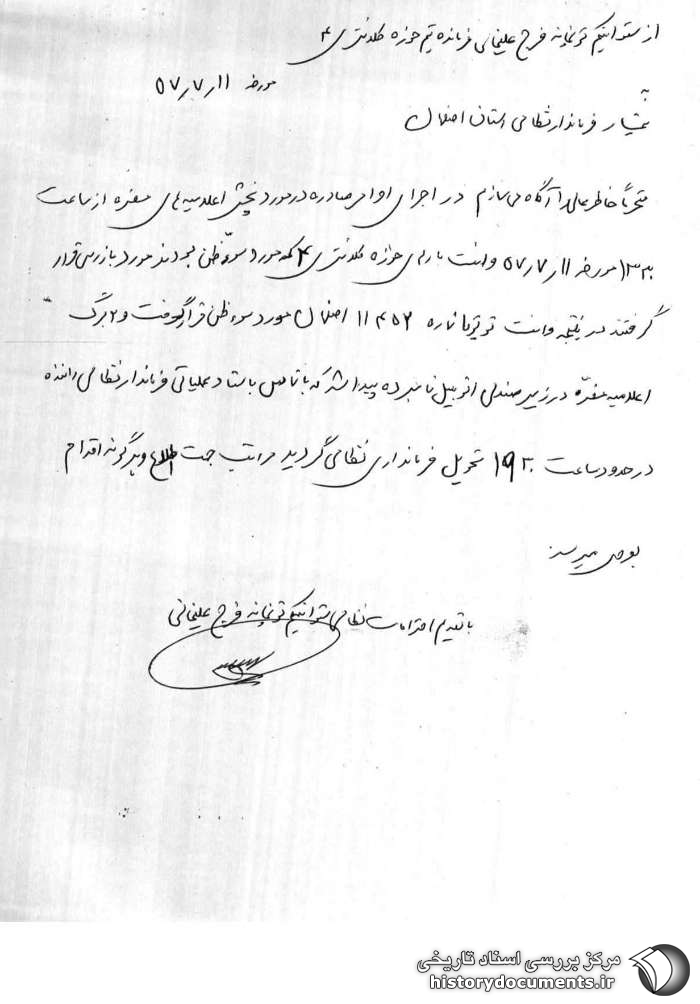 از ستوانیکم توپخانه فرج علیخانی فرمانده تیم حوزه کلانتری ۴
مورخه ۵۷٫۷٫۱۱
به
تیمسار فرماندار نظامی استان اصفهان
محترماً خاطر عالی را آگاه می سازم در اجرای اوامر صادره در مورد پخش اعلامیه های مضره از ساعت
۱۳۳۰ مورخه ۵۷٫۷٫۱۱ وانت بارهای حوزه کلانتری ۴ که مورد سوءظن بودند مورد بازرسی قرار
گرفتند در نتیجه وانت تویوتا شماره ۱۱۴۵۲ اصفهان مورد سوءظن قرار گرفت و برگ
اعلامیه مضره در زیر صندلی اتومبیل نامبرده پیدا شد که با تماس با ستاد عملیاتی فرماندار نظامی راننده
در حدود ساعت ۱۹۳۰ تحویل فرمانداری نظامی گردید مراتب جهت اطلاع و هرگونه اقدام
بعرض میرسد
با تقدیم احترامات نظامی ستوانیکم توپخانه فرج علیخانی
مرکز بررسی اسناد تاریخی
historydocuments.ir